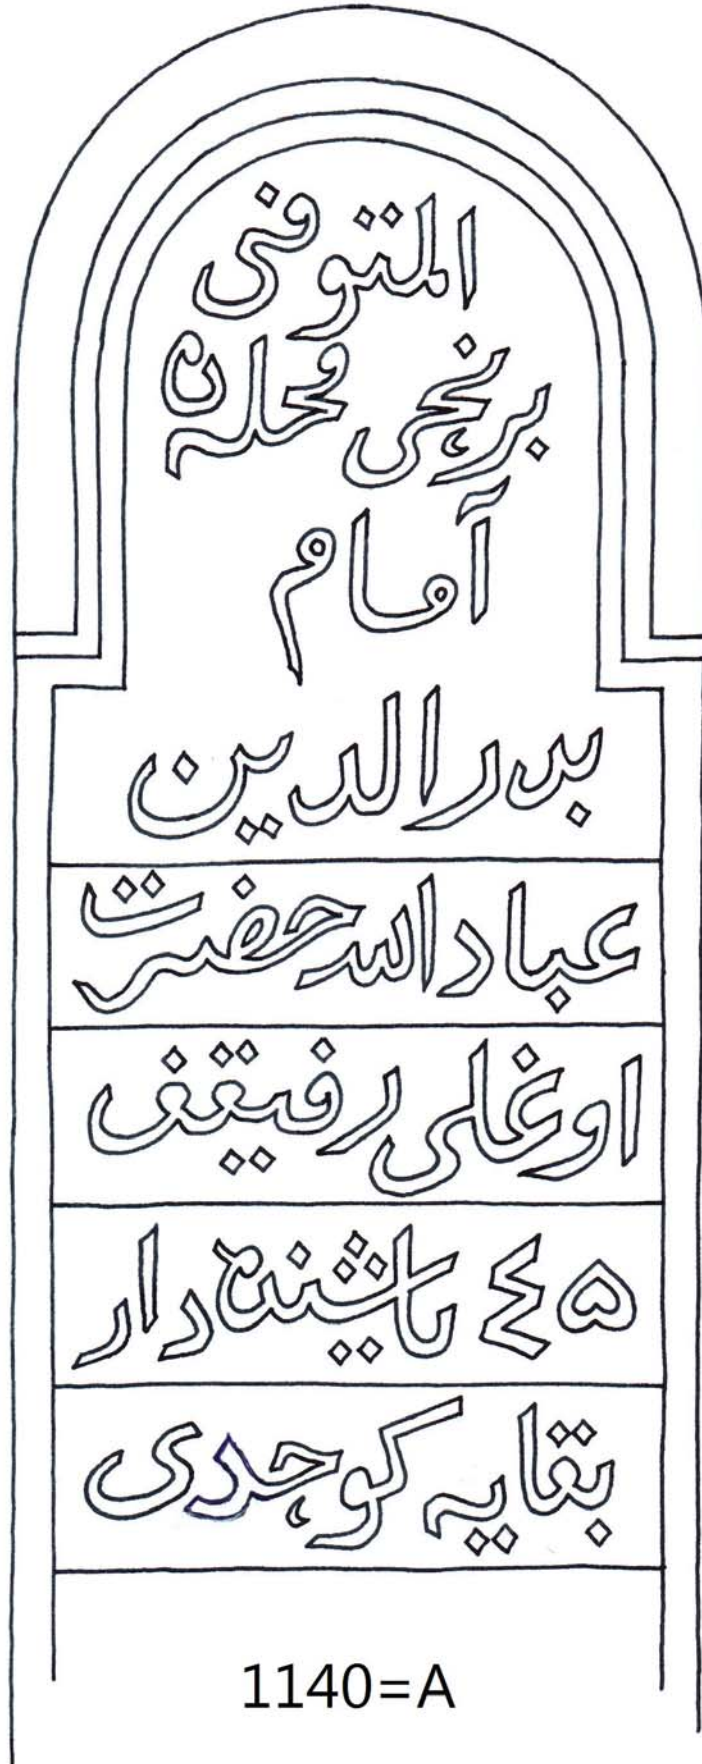 المتوفى
برنجى محله ده
آمام
بدرالدين
عبادالله حضرت
اوغلى رفيقف
٤٥ ياشينده دار
بقايه كوچدى
1140=A